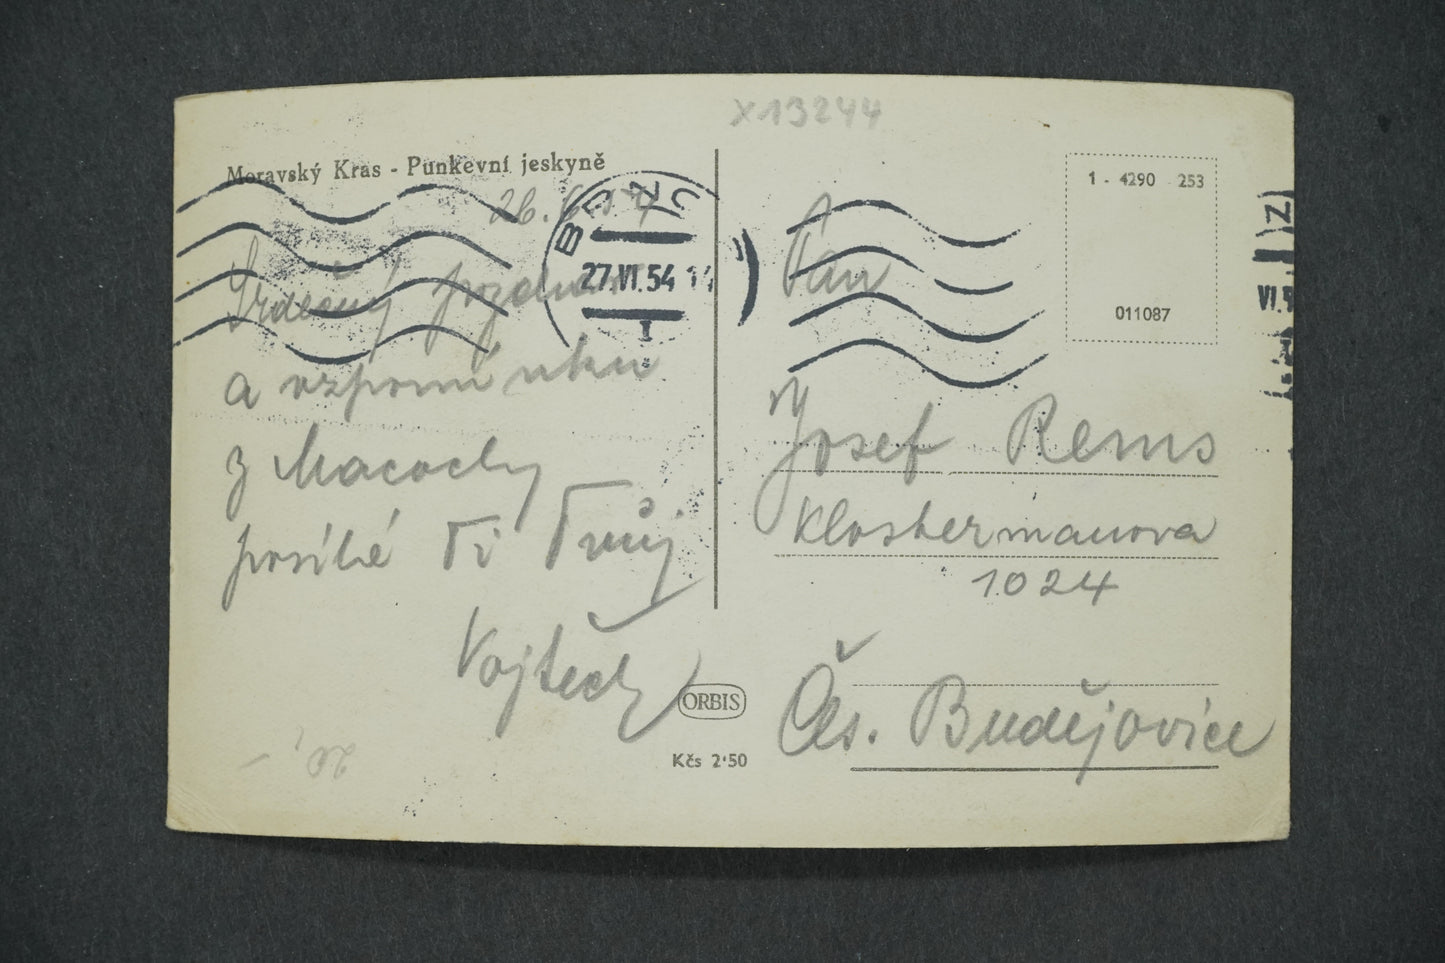 x13244
Moravský Kras - Punkevní jeskyně
26.6.54
Srdečný pozdrav
a vzpomínku
z Macochy
posílá Ti Tvůj
Vojtěch
BRNO
27.VI.54
1
ORBIS
Kčs 2·50
20,-
1 - 4290 253
011087
Pan
Josef Rems
Klostermanova
1024
Čes. Budějovice
VI.5